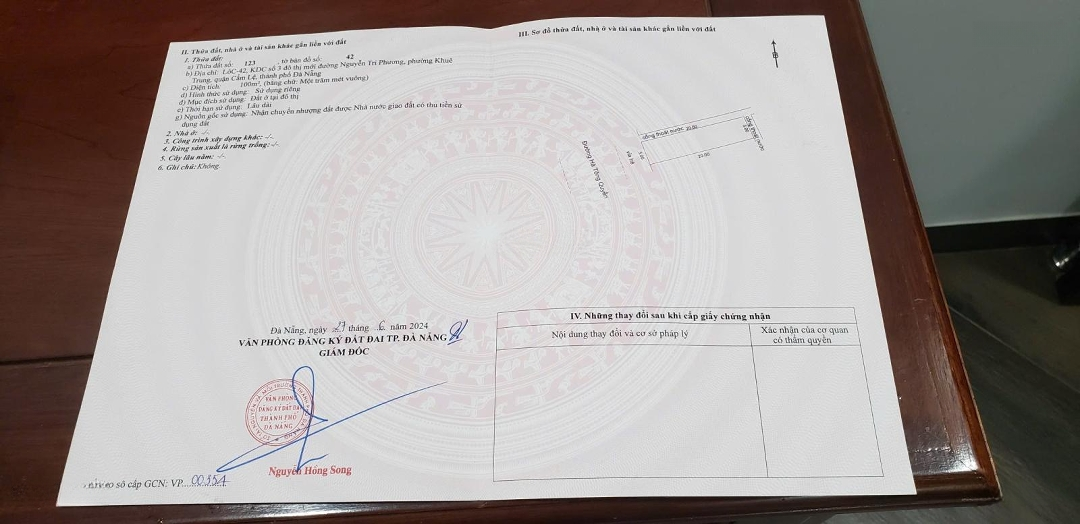 II. Thửa đất, nhà ở và tài sản khác gắn liền với đất
1. Thửa đất:
a) Thửa đất số: 123 , tờ bản đồ số: 42
b) Địa chỉ: Lô C-42, KDC số 3 đô thị mới đường Nguyễn Tri Phương, phường Khuê
Trung, quận Cẩm Lệ, thành phố Đà Nẵng
c) Diện tích: 100m², (bằng chữ: Một trăm mét vuông)
d) Hình thức sử dụng: Sử dụng riêng
đ) Mục đích sử dụng: Đất ở tại đô thị
e) Thời hạn sử dụng: Lâu dài
g) Nguồn gốc sử dụng: Nhận chuyển nhượng đất được Nhà nước giao đất có thu tiền sử
dụng đất
2. Nhà ở: -/-
3. Công trình xây dựng khác: -/-
4. Rừng sản xuất là rừng trồng: -/-
5. Cây lâu năm: -/-
6. Ghi chú: Không
Đà Nẵng, ngày 27 tháng 6 năm 2024
VĂN PHÒNG ĐĂNG KÝ ĐẤT ĐAI TP. ĐÀ NẴNG
GIÁM ĐỐC
VĂN PHÒNG
ĐĂNG KÝ ĐẤT ĐAI
THÀNH PHỐ
ĐÀ NẴNG
Nguyễn Hồng Song
vào sổ cấp GCN: VP 00354
III. Sơ đồ thửa đất, nhà ở và tài sản khác gắn liền với đất
B
cống thoát nước
20.00
cống thoát nước
5.00
Vỉa hè
5.00
20.00
Đường Hà Tông Quyền
IV. Những thay đổi sau khi cấp giấy chứng nhận
Nội dung thay đổi và cơ sở pháp lý
Xác nhận của cơ quan
có thẩm quyền